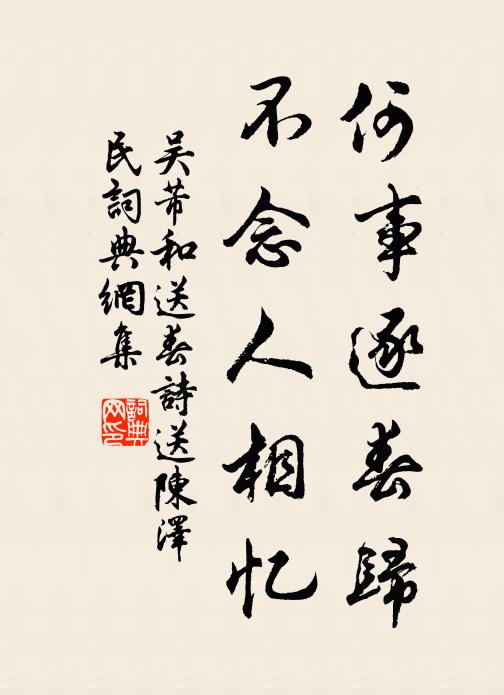 何事逐春歸
不念人相忆
吴芾和送春詩送陳澤
民詞典網集
詞典
网印